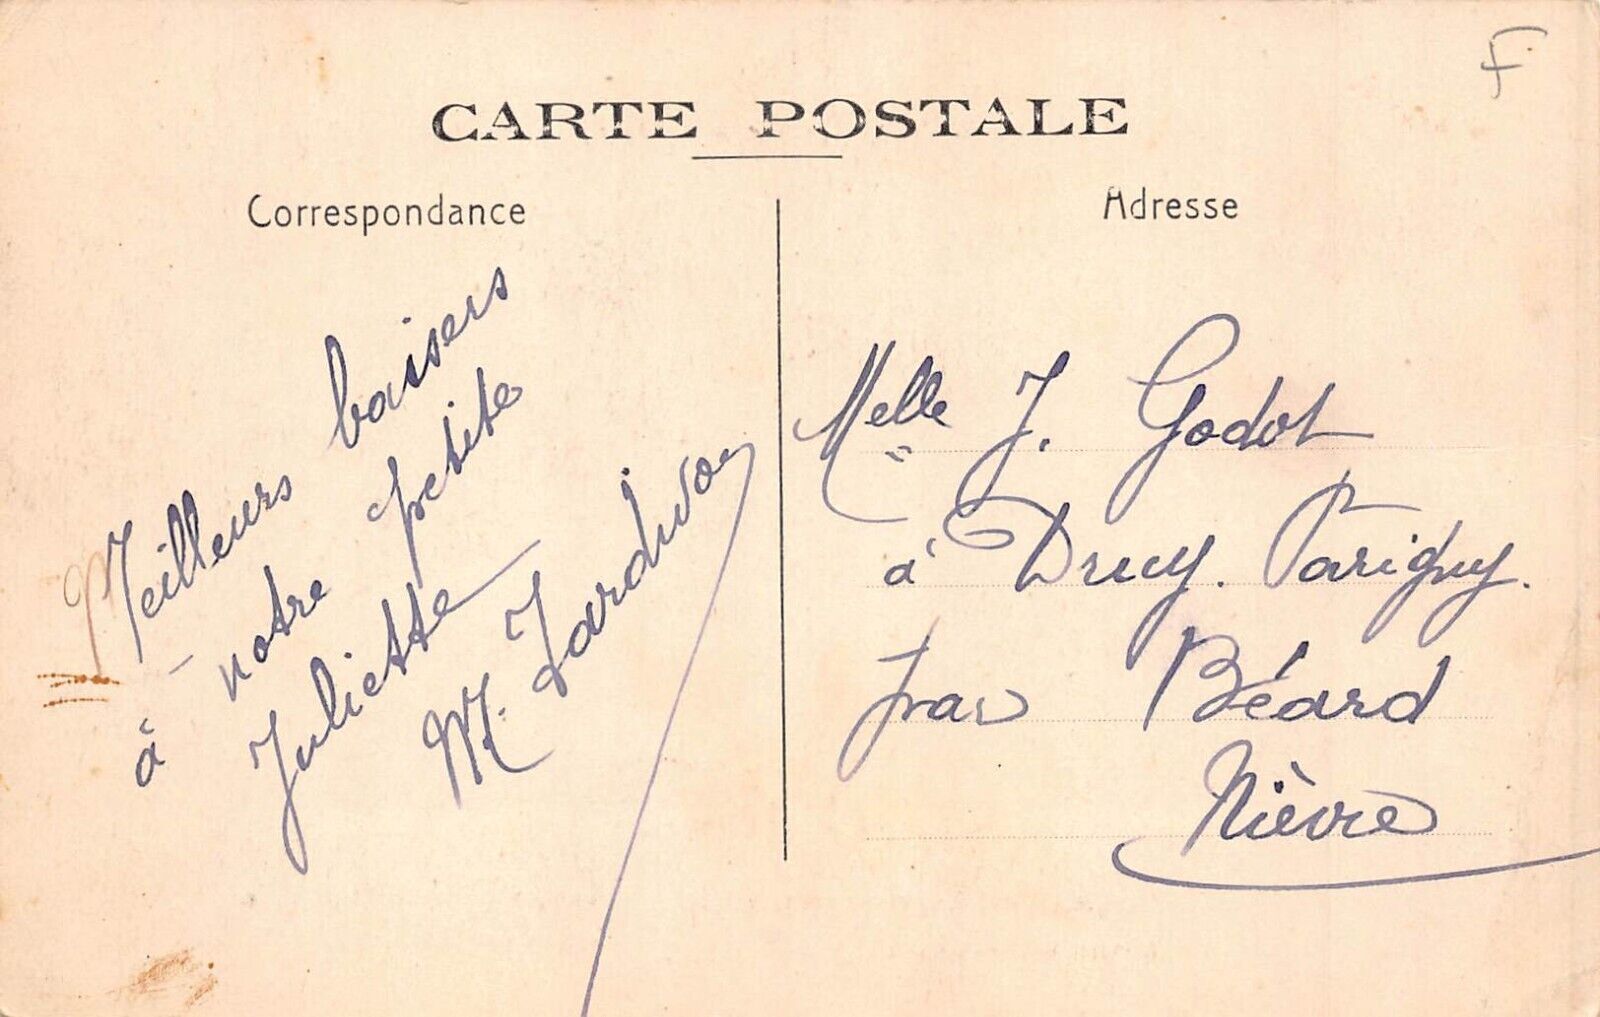 F
CARTE POSTALE
Correspondance
Meilleurs baisers
à notre petite
Juliette
M. Tardivon
Adresse
Melle J. Godot
à Drucy. Parigny.
par Béard
Nièvre